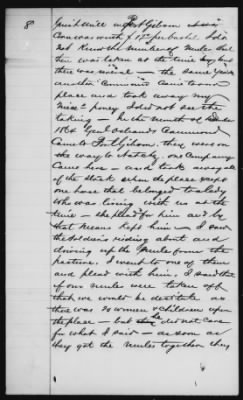 8
Grist Mill in Port Gibson
Corn was worth $
not know the number of Mules but
then was taken at the time
there was several — the same year
another Command came to our
place and took away my
niece's poney I did not see the
taking — In the month of
1864 Genl Osbands Command
Came to Port Gibson, they were on
the way to Natchez, one Company
Came here — and took away all
of the stock when the place except
one horse that belonged to a lady
who was living with us at the
time — she plead for him and by
that means kept him — I saw
the Soldiers riding about and
driving up the Mules from the
pasture. I went to one of them
and plead with him. I said that
if our mules were taken off
that we would be destitute as
there was 30 women & children upon
the place — but he did not care
for what I said — as soon as
they got the mules together they